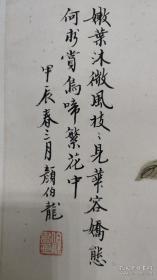 嫩葉沐微風枝〻見華容嬌態
何求賞鳥啼繁花中
甲辰春三月顏伯龍